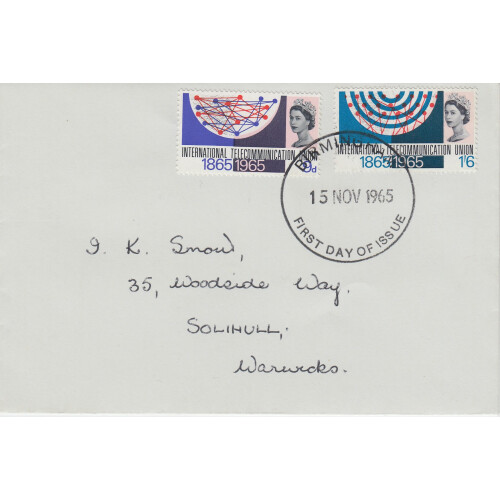 INTERNATIONAL TELECOMMUNICATION UNION
1865 1965 9d
INTERNATIONAL TELECOMMUNICATION UNION
1865 1965 1'6
BIRMINGHAM
15 NOV 1965
FIRST DAY OF ISSUE
I. K. Snow,
35, Woodside Way,
SOLIHULL,
Warwicks.